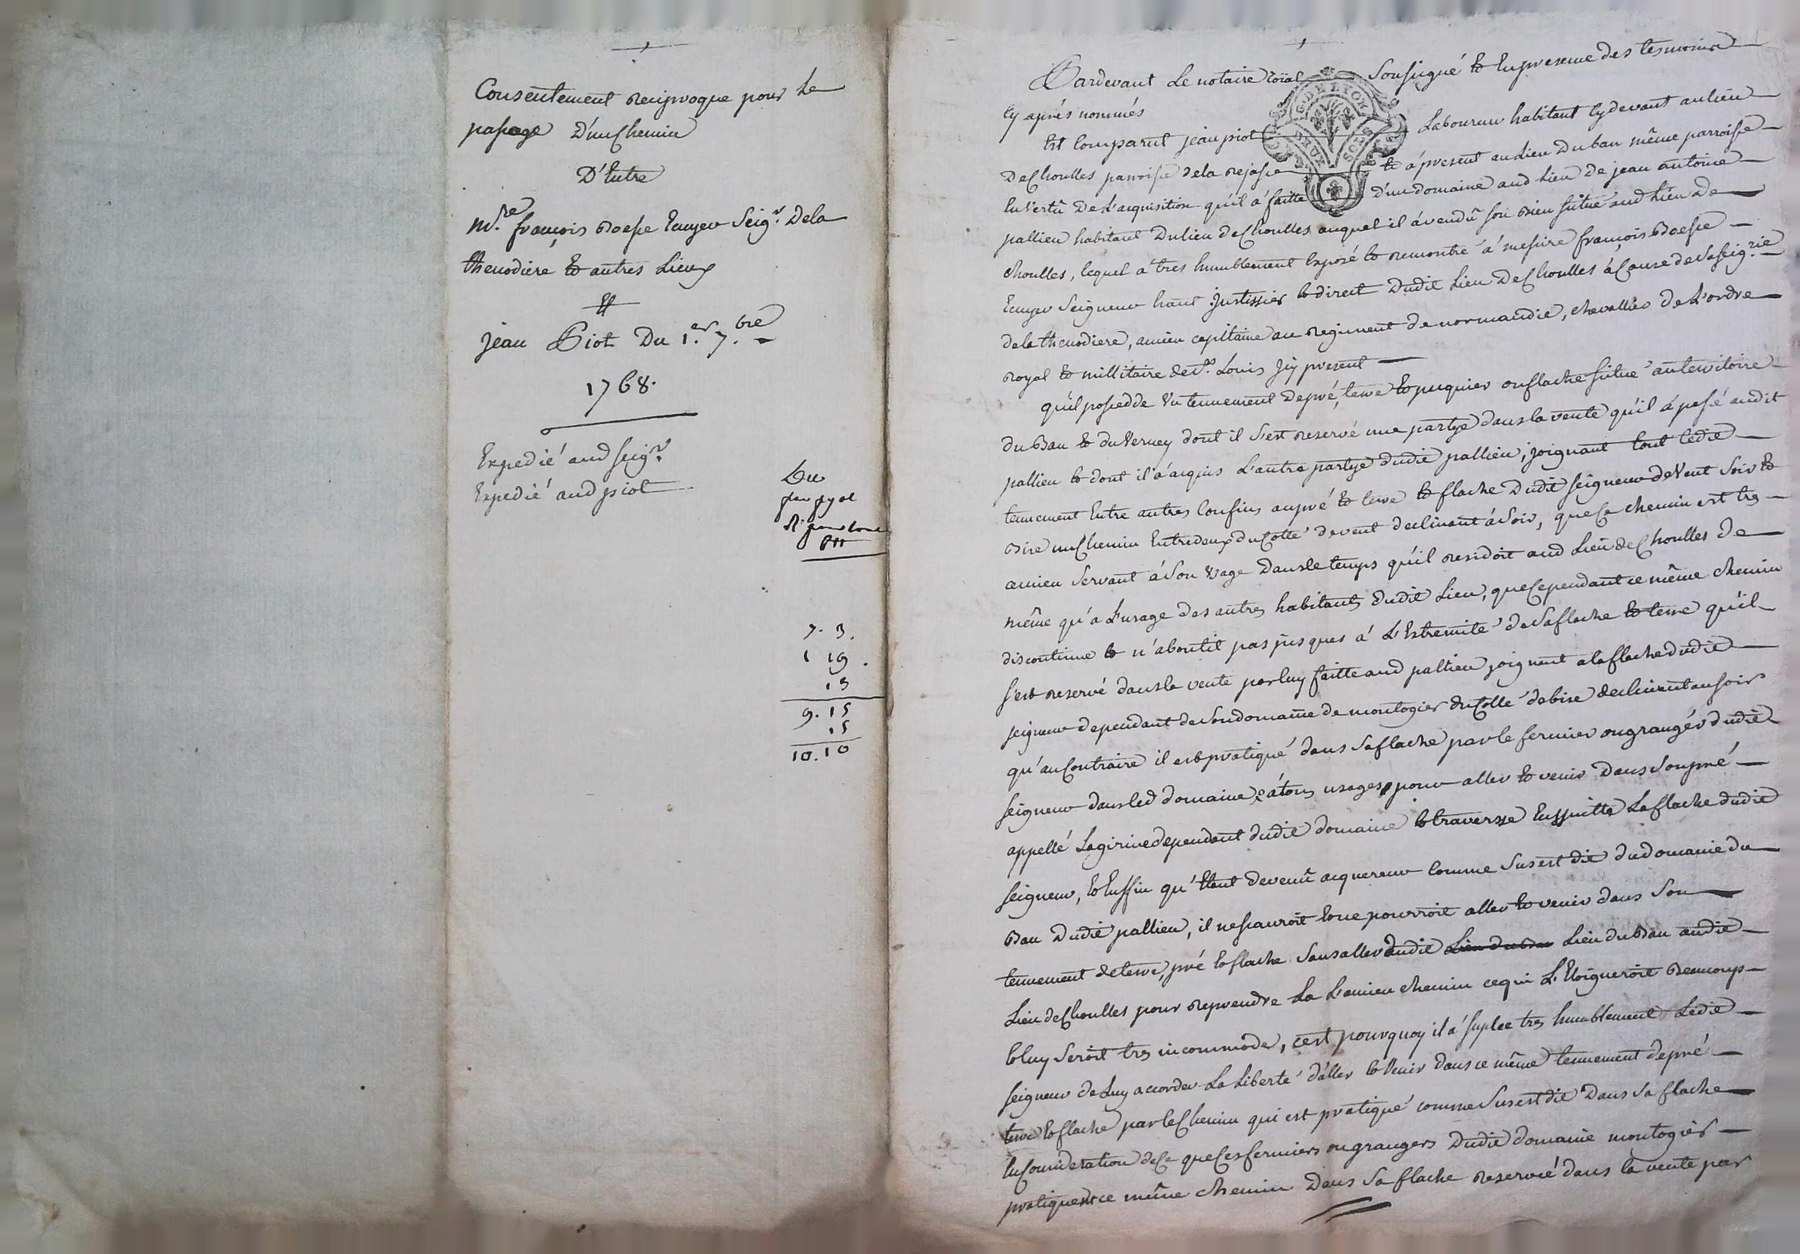 Consentement reciproque pour Le
passage D'un Chemin
D'Entre
Mre. françois Boesse Ecuyer Seigr. Dela
thenodière et autres Lieux
Et
jean Piot Du 1.er 7.bre
1768.
Expedié aud seigr.
Expedié aud piot
Du
7. 3.
1 19.
13
9. 15
15
10. 10
G. DE LYON
DEUX SOLS
Pardevant Le notaire roïal Sousigné et En presence des temoins
Cy après nommés
Est Comparut jean piot Laboureur habitant Cy devant au lieu
De Choulles parroisse de la rejasse et á present au Lieu Du ban même parroisse
En Vertû De L'acquisition qu'il á faitte D'un domaine aud Lieu De jean antoine
pallieu habitant Du lieu de Choulles auquel il á vendû son Bien sitüé aud Lieu De
Choulles, lequel a tres humblement Exposé et remontré á messire françois Boesse
Ecuyer Seigneur haut justissier et direct Dudit Lieu De Choulles á Cause de Sa Seig.rie
de la thenodiere, ancien capitaine au Regiment de normandie, chevallier de L'ordre
royal et millitaire de St. Louis Jcy present
qu'il possedde Un tennement De pré, terre et pâquier ou flache sitüé au territoire
du Bau et du Verney dont il s'est reservé une partye dans la vente qu'il á passé audit
pallieu et dont il a acquis L'autre partye dudit pallieu, joignant tout ledit
tennement Entre autres Confins au pré et terre et flache Dudit seigneur de Vent Soir et
Bize un Chemin Entredeux du Cotté de vent declinant á Soir, que Ce chemin est tres
ancien Servant á Son Usage Dans le temps qu'il residoit aud Lieu de Choulles De
même qu'a L'usage des autres habitants Dudit Lieu, que Cependant ce même Chemin
discontinue et n'aboutit pas jusques á L'Extremité de Sa flache et terre qu'il
s'est reservé dans la vente par luy faitte aud pallieu joignant a la flache dudit
seigneur dependant de Son domaine de montogier du Cotté de bize declinant au soir
qu'au Contraire il est pratiqué dans Sa flache par le fermier ou granger dudit
seigneur dans led domaine, á tous usages pour aller et venir Dans Son pré
appellé Lagirine dependant dudit domaine et traverse Enssuitte La flache dudit
seigneur, et Enffin qu'Etant devenû acquereur Comme Susest dit du domaine du
Bau Dudit pallieu, il ne scauroit et ne pourroit aller et venir dans Son
tennement de terre, pré et flache Sans aller audit Lieu du Bau audit
Lieu de Choulles pour Reprendre La L'ancien Chemin ce qui L'Eloigneroit Beaucoup
et luy Seroit tres incommode, c'est pourquoy il á suplié tres humblement Ledit
seigneur de Luy accorder La Liberté d'aller et Venir dans ce même tennement de pré
terre et flache par le Chemin qui est pratiqué comme Susest dit Dans Sa flache
En Consideration de Ce que Ces fermiers ou grangers Dudit domaine montogier
pratiquent ce même chemin Dans Sa flache reservée dans la vente par